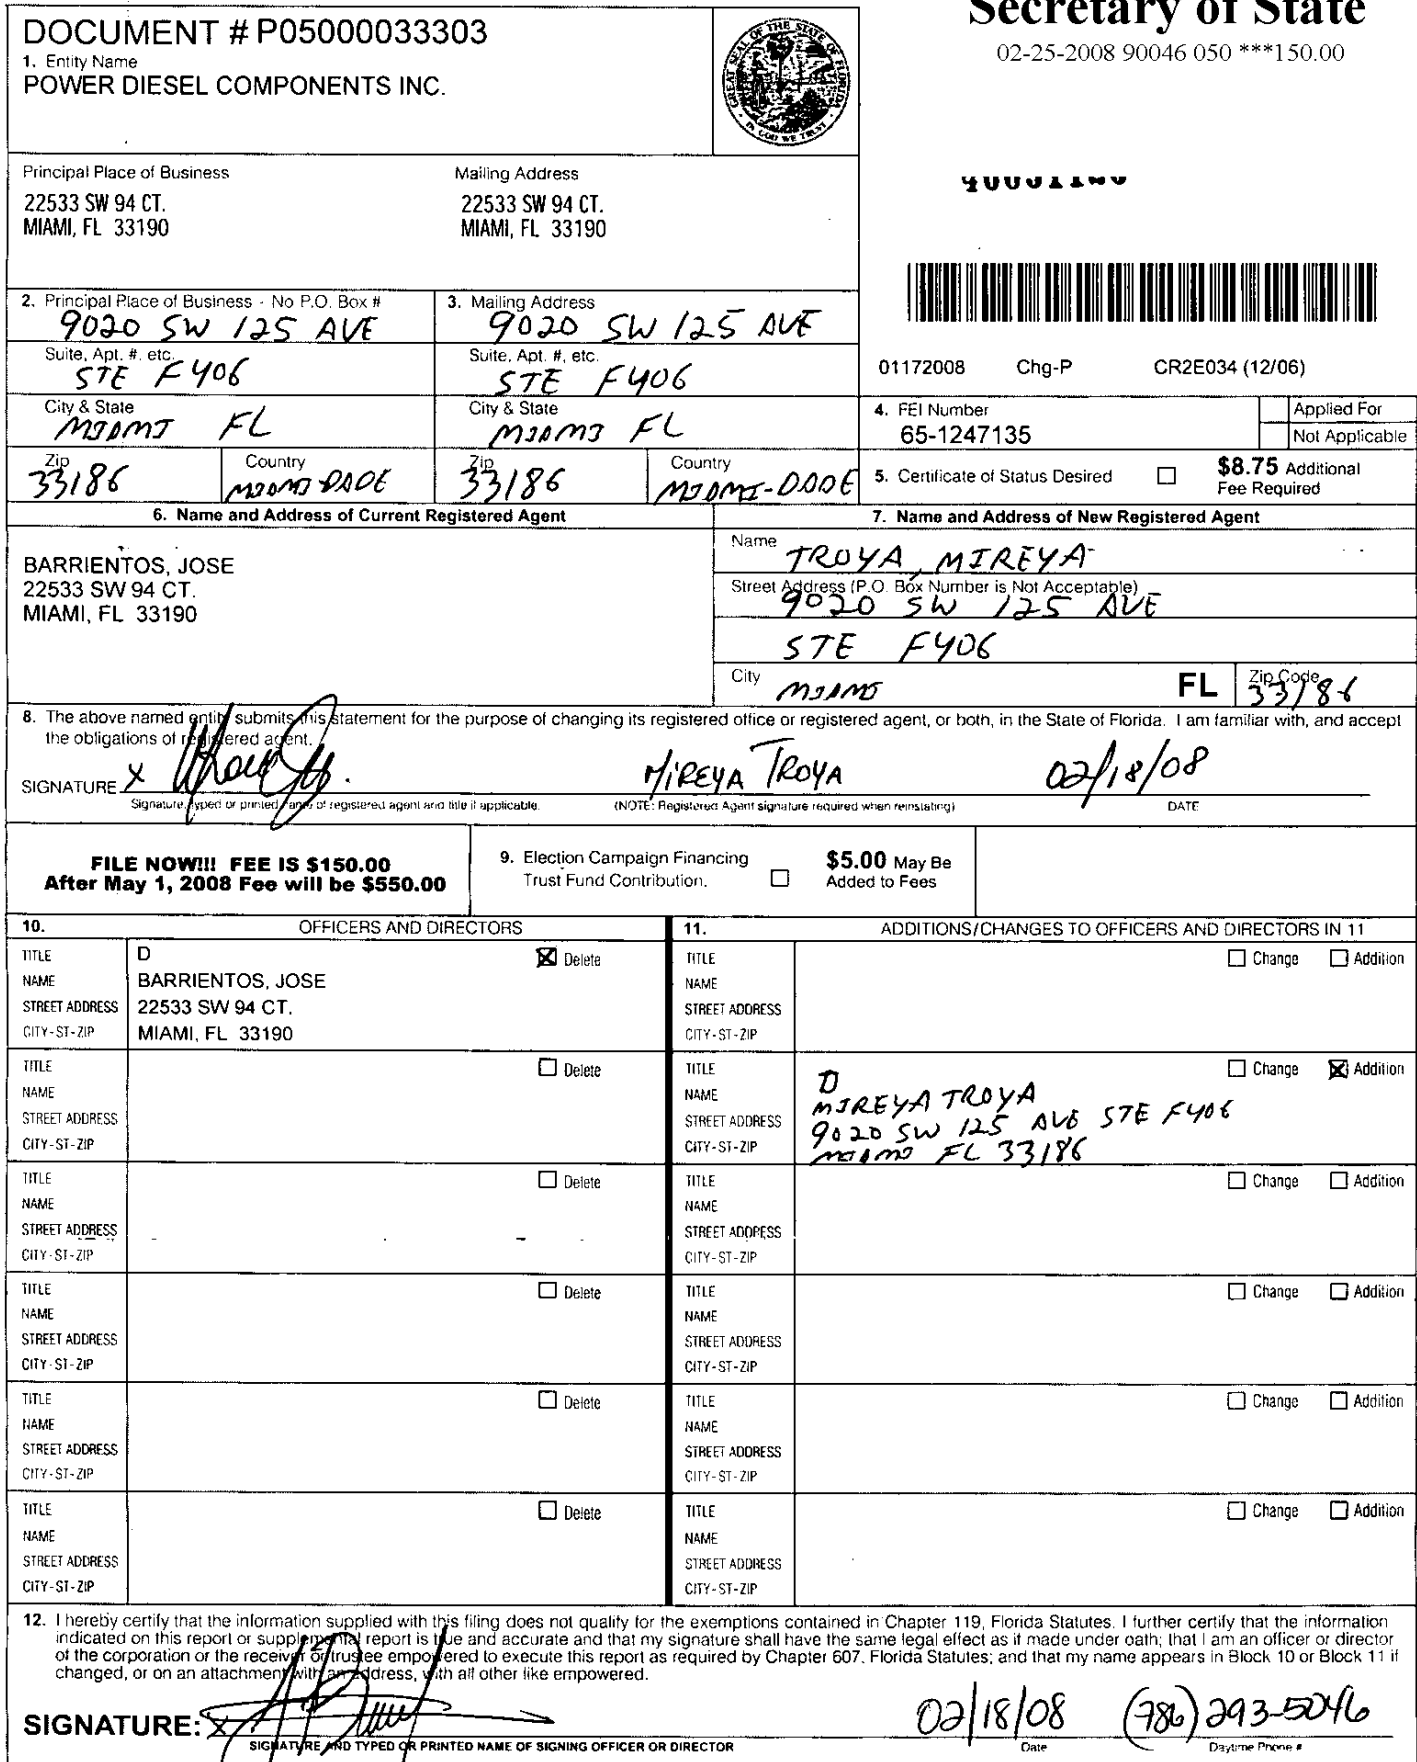 Secretary of State
02-25-2008 90046 050 ***150.00
DOCUMENT # P05000033303
1. Entity Name
POWER DIESEL COMPONENTS INC.
GREAT SEAL OF THE STATE OF FLORIDA
IN GOD WE TRUST
Principal Place of Business
22533 SW 94 CT.
MIAMI, FL 33190
Mailing Address
22533 SW 94 CT.
MIAMI, FL 33190
2. Principal Place of Business - No P.O. Box #
9020 SW 125 AVE
3. Mailing Address
9020 SW 125 AVE
Suite, Apt. #. etc.
STE F406
Suite, Apt. #, etc.
STE F406
City & State
MIAMI FL
City & State
MIAMI FL
Zip
33186
Country
MIAMI-DADE
Zip
33186
Country
MIAMI-DADE
01172008 Chg-P CR2E034 (12/06)
4. FEI Number
65-1247135
Applied For
Not Applicable
5. Certificate of Status Desired
$8.75 Additional
Fee Required
6. Name and Address of Current Registered Agent
BARRIENTOS, JOSE
22533 SW 94 CT.
MIAMI, FL 33190
7. Name and Address of New Registered Agent
Name
TROYA, MIREYA
Street Address (P.O. Box Number is Not Acceptable)
9020 SW 125 AVE
STE F406
City
MIAMI
FL
Zip Code
33186
8. The above named entity submits this statement for the purpose of changing its registered office or registered agent, or both, in the State of Florida. I am familiar with, and accept
the obligations of registered agent.
SIGNATURE X
MIREYA TROYA 02/18/08
Signature, typed or printed name of registered agent and title if applicable.
(NOTE: Registered Agent signature required when reinstating)
DATE
FILE NOW!!! FEE IS $150.00
After May 1, 2008 Fee will be $550.00
9. Election Campaign Financing
Trust Fund Contribution.
$5.00 May Be
Added to Fees
10. OFFICERS AND DIRECTORS
11. ADDITIONS/CHANGES TO OFFICERS AND DIRECTORS IN 11
TITLE D Delete
NAME BARRIENTOS, JOSE
STREET ADDRESS 22533 SW 94 CT.
CITY-ST-ZIP MIAMI, FL 33190
TITLE Change Addition
NAME
STREET ADDRESS
CITY-ST-ZIP
TITLE Delete
NAME
STREET ADDRESS
CITY-ST-ZIP
TITLE D Change Addition
NAME MIREYA TROYA
STREET ADDRESS 9020 SW 125 AVE STE F406
CITY-ST-ZIP MIAMI FL 33186
TITLE Delete
NAME
STREET ADDRESS
CITY-ST-ZIP
TITLE Change Addition
NAME
STREET ADDRESS
CITY-ST-ZIP
TITLE Delete
NAME
STREET ADDRESS
CITY-ST-ZIP
TITLE Change Addition
NAME
STREET ADDRESS
CITY-ST-ZIP
TITLE Delete
NAME
STREET ADDRESS
CITY-ST-ZIP
TITLE Change Addition
NAME
STREET ADDRESS
CITY-ST-ZIP
TITLE Delete
NAME
STREET ADDRESS
CITY-ST-ZIP
TITLE Change Addition
NAME
STREET ADDRESS
CITY-ST-ZIP
12. I hereby certify that the information supplied with this filing does not qualify for the exemptions contained in Chapter 119, Florida Statutes. I further certify that the information
indicated on this report or supplemental report is true and accurate and that my signature shall have the same legal effect as if made under oath; that I am an officer or director
of the corporation or the receiver or trustee empowered to execute this report as required by Chapter 607, Florida Statutes; and that my name appears in Block 10 or Block 11 if
changed, or on an attachment with an address, with all other like empowered.
SIGNATURE: X
02/18/08 (786)293-5046
SIGNATURE AND TYPED OR PRINTED NAME OF SIGNING OFFICER OR DIRECTOR
Date
Daytime Phone #